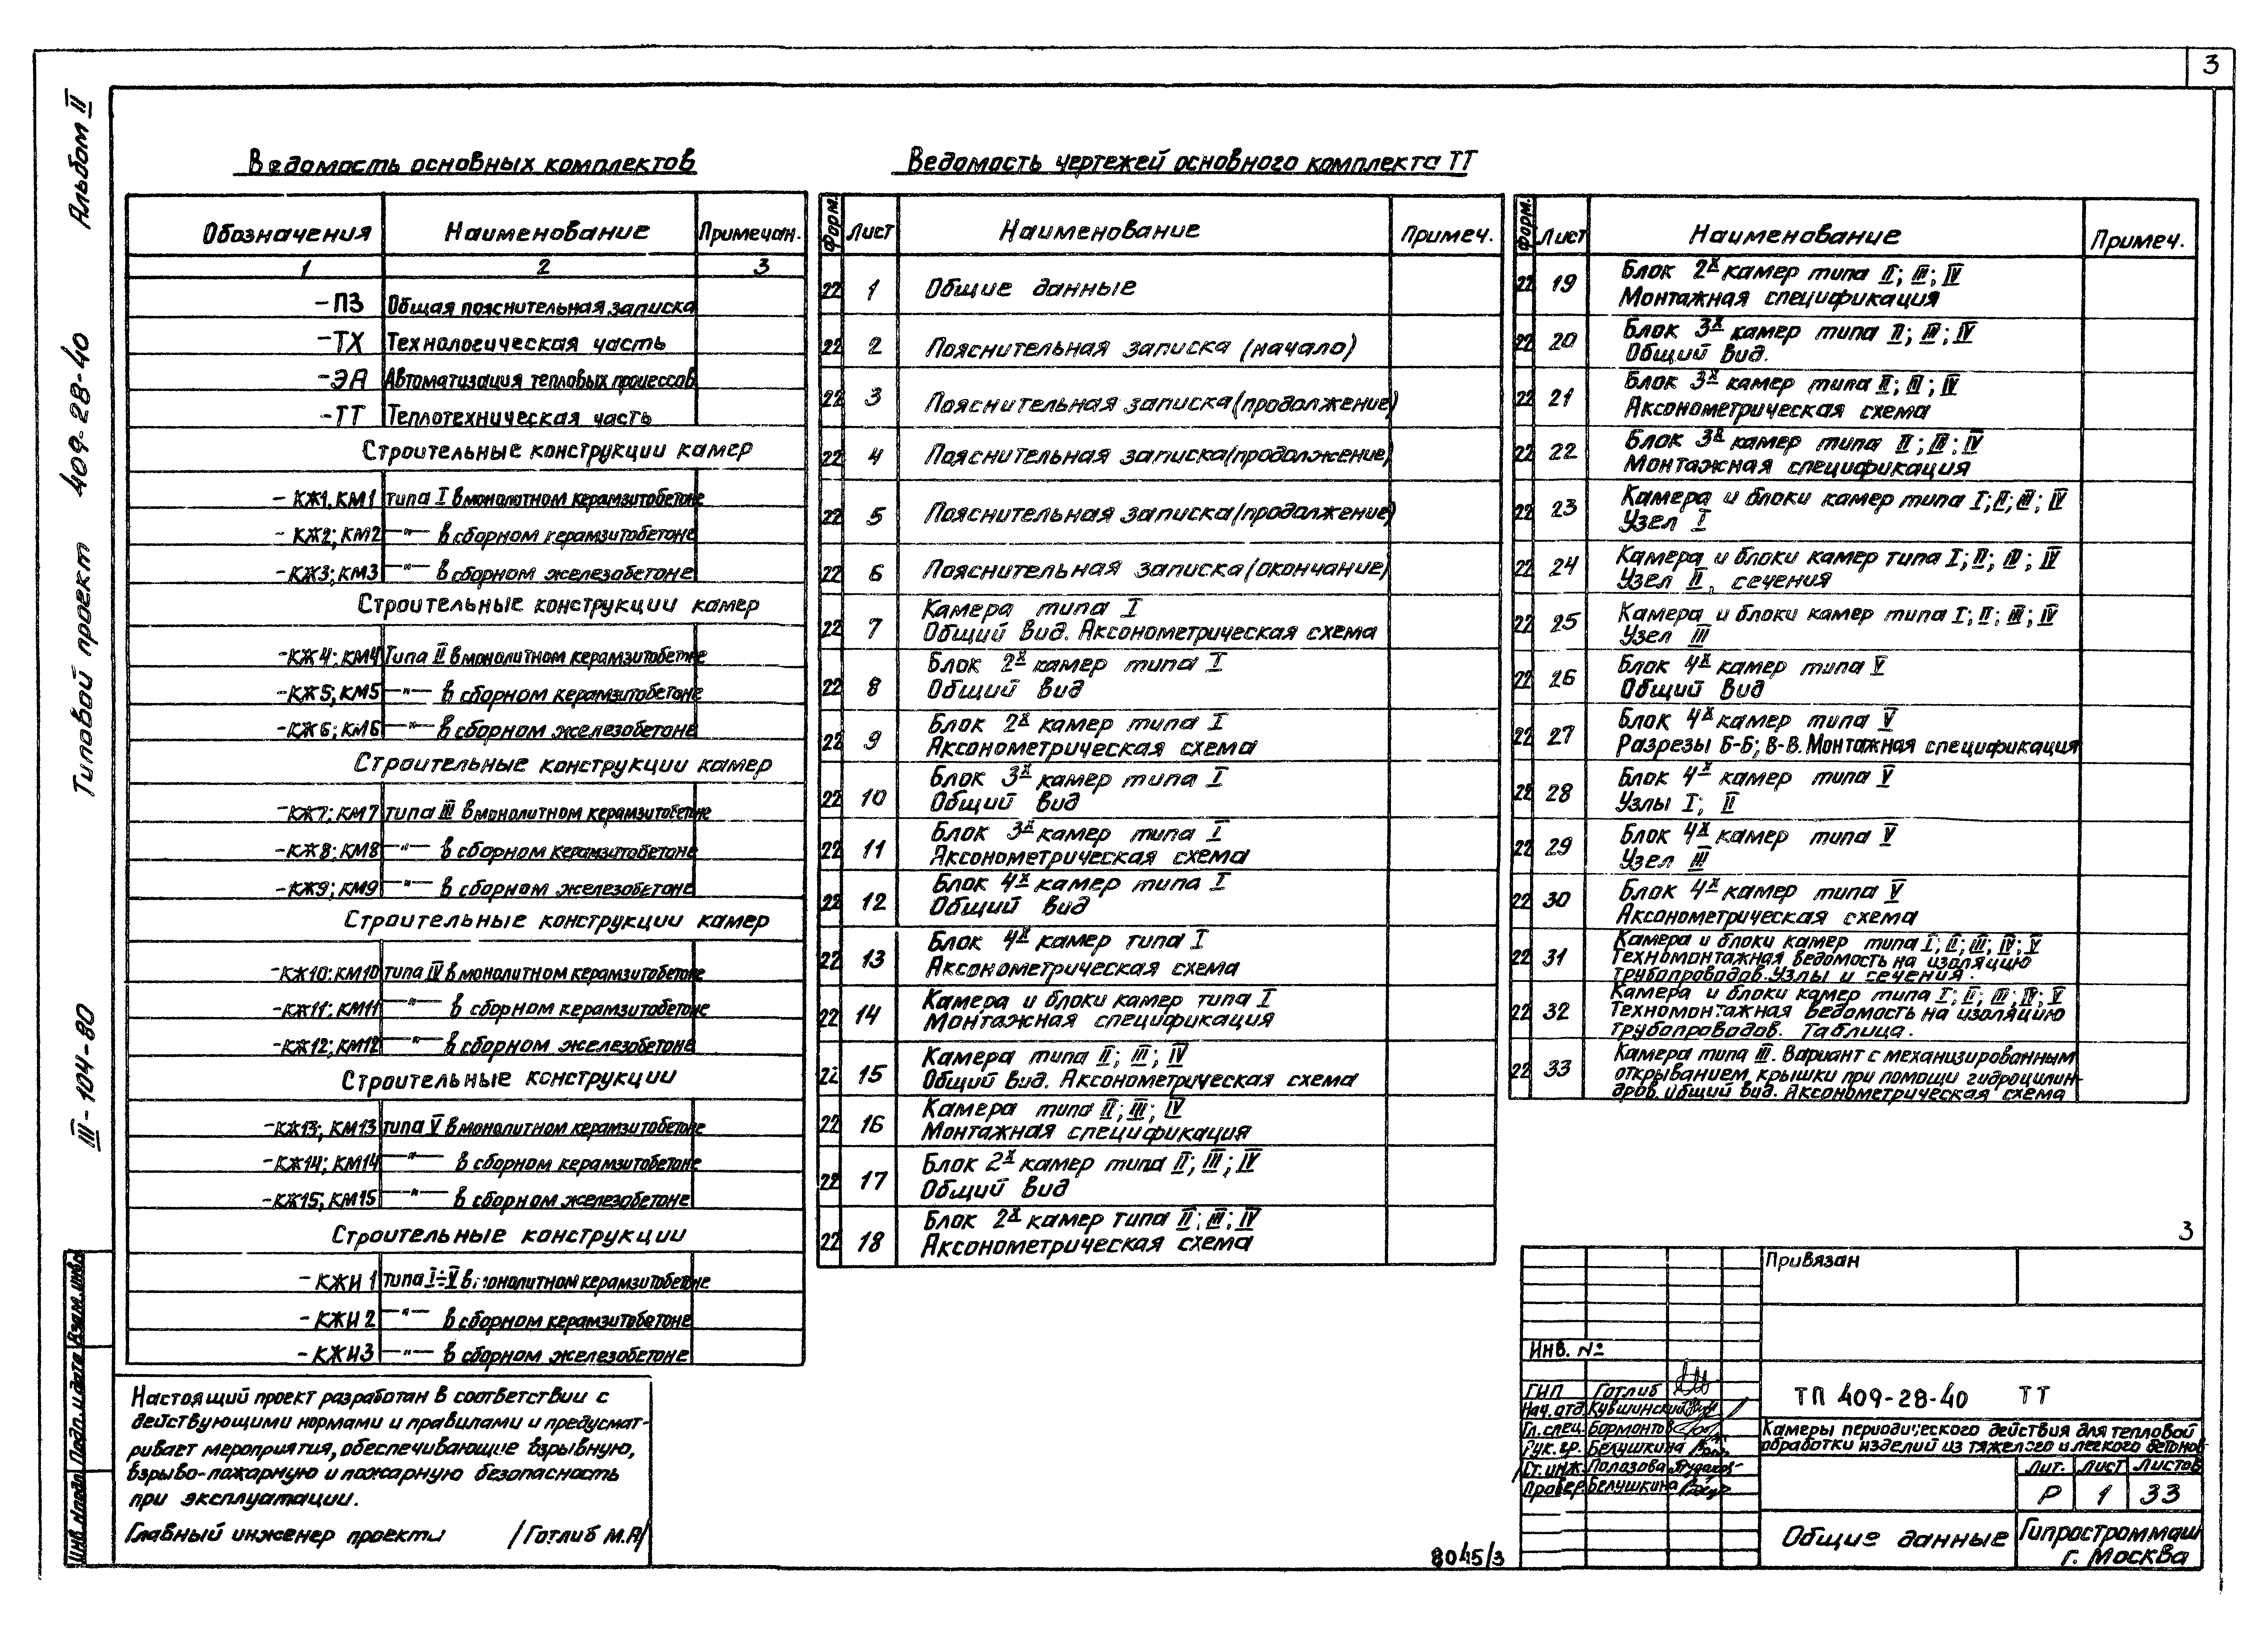 3
Альбом II
Типовой проект 409-28-40
III-104-80
Ведомость основных комплектов
Обозначения Наименование Примечан.
1 2 3
-ПЗ Общая пояснительная записка
-ТХ Технологическая часть
-ЭА Автоматизация тепловых процессов
-ТТ Теплотехническая часть
Строительные конструкции камер
- КЖ1, КМ1 типа I в монолитном керамзитобетоне
- КЖ2; КМ2 —"— в сборном керамзитобетоне
- КЖ3; КМ3 —"— в сборном железобетоне
Строительные конструкции камер
-КЖ4; КМ4 Типа II в монолитном керамзитобетоне
-КЖ5; КМ5 —"— в сборном керамзитобетоне
-КЖ6; КМ6 —"— в сборном железобетоне
Строительные конструкции камер
-КЖ7; КМ7 типа III в монолитном керамзитобетоне
-КЖ8; КМ8 —"— в сборном керамзитобетоне
-КЖ9; КМ9 —"— в сборном железобетоне
Строительные конструкции камер
-КЖ10; КМ10 типа IV в монолитном керамзитобетоне
-КЖ11; КМ11 —"— в сборном керамзитобетоне
-КЖ12; КМ12 —"— в сборном железобетоне
Строительные конструкции
-КЖ13; КМ13 типа V в монолитном керамзитобетоне
-КЖ14; КМ14 —"— в сборном керамзитобетоне
-КЖ15; КМ15 —"— в сборном железобетоне
Строительные конструкции
- КЖИ 1 типа I÷V в монолитном керамзитобетоне
- КЖИ 2 —"— в сборном керамзитобетоне
- КЖИ3 —"— в сборном железобетоне
Настоящий проект разработан в соответствии с
действующими нормами и правилами и предусмат-
ривает мероприятия, обеспечивающие взрывную,
взрыво-пожарную и пожарную безопасность
при эксплуатации.
Главный инженер проекта /Готлиб М.А/
Ведомость чертежей основного комплекта ТТ
Форм. Лист Наименование Примеч.
22 1 Общие данные
22 2 Пояснительная записка (начало)
22 3 Пояснительная записка (продолжение)
22 4 Пояснительная записка (продолжение)
22 5 Пояснительная записка (продолжение)
22 6 Пояснительная записка (окончание)
22 7 Камера типа I
Общий вид. Аксонометрическая схема
22 8 Блок 2х камер типа I
Общий вид
22 9 Блок 2х камер типа I
Аксонометрическая схема
22 10 Блок 3х камер типа I
Общий вид
22 11 Блок 3х камер типа I
Аксонометрическая схема
22 12 Блок 4х камер типа I
Общий вид
22 13 Блок 4х камер типа I
Аксонометрическая схема
22 14 Камера и блоки камер типа I
Монтажная спецификация
22 15 Камера типа II; III; IV
Общий вид. Аксонометрическая схема
22 16 Камера типа II; III; IV
Монтажная спецификация
22 17 Блок 2х камер типа II; III; IV
Общий вид
22 18 Блок 2х камер типа II; III; IV
Аксонометрическая схема
Форм. Лист Наименование Примеч.
22 19 Блок 2х камер типа II; III; IV
Монтажная спецификация
22 20 Блок 3х камер типа II; III; IV
Общий вид.
22 21 Блок 3х камер типа II; III; IV
Аксонометрическая схема
22 22 Блок 3х камер типа II; III; IV
Монтажная спецификация
22 23 Камера и блоки камер типа I; II; III; IV
Узел I
22 24 Камера и блоки камер типа I; II; III; IV
Узел II, сечения
22 25 Камера и блоки камер типа I; II; III; IV
Узел III
22 26 Блок 4х камер типа V
Общий вид
22 27 Блок 4х камер типа V
Разрезы Б-Б; В-В. Монтажная спецификация
22 28 Блок 4х камер типа V
Узлы I; II
22 29 Блок 4х камер типа V
Узел III
22 30 Блок 4х камер типа V
Аксонометрическая схема
22 31 Камера и блоки камер типа I; II; III; IV; V
Техномонтажная ведомость на изоляцию
трубопроводов. Узлы и сечения.
22 32 Камера и блоки камер типа I; II; III; IV; V
Техномонтажная ведомость на изоляцию
трубопроводов. Таблица.
22 33 Камера типа III. Вариант с механизированным
открыванием крышки при помощи гидроцилин-
дров. Общий вид. Аксонометрическая схема
3
Привязан
Инв. №
ГИП Готлиб
Нач. отд. Кувшинский
Гл. спец. Бормонтов
Рук. гр. Белушкина
Ст. инж. Полозова
Провер. Белушкина
ТП 409-28-40 ТТ
Камеры периодического действия для тепловой
обработки изделий из тяжелого и легкого бетонов
Лит. Лист Листов
Р 1 33
Общие данные
Гипростроммаш
г. Москва
8045/3
Инв. № подл. Подп. и дата Взам. инв. №